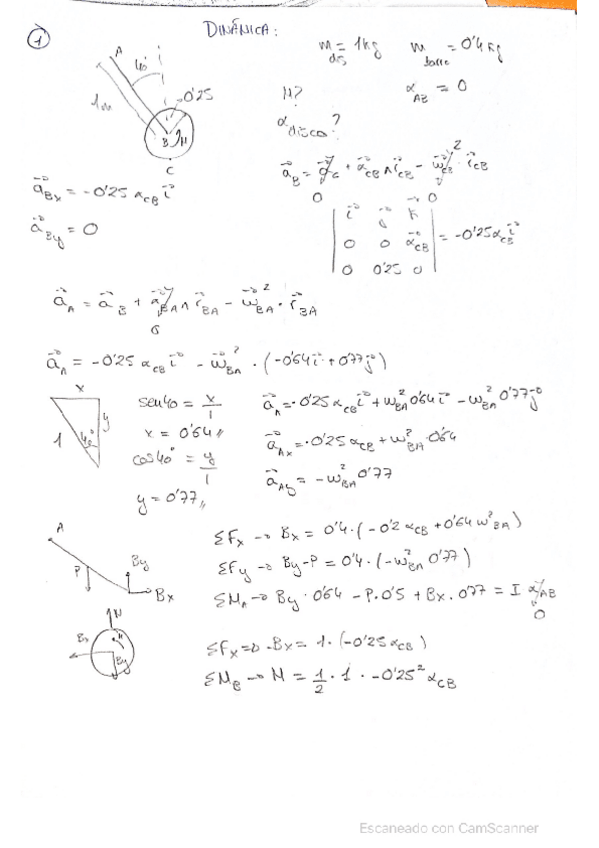 ① DINÁMICA:
m dis = 1kg   m barra = 0'4 kg
A   40°   1m   0'25   B   M   C
M?   α_AB = 0
α disco?
a⃗_B = a⃗_C + α⃗_CB ∧ r⃗_CB - ω⃗_CB² · r⃗_CB
0   0
a⃗_Bx = -0'25 α_CB i⃗
a⃗_By = 0
| i⃗ j⃗ k⃗ |
| 0 0 α⃗_CB | = -0'25 α_CB i⃗
| 0 0'25 0 |
a⃗_A = a⃗_B + α⃗_BA ∧ r⃗_BA - ω⃗_BA² · r⃗_BA
0
a⃗_A = -0'25 α_CB i⃗ - ω⃗_BA² · (-0'64 i⃗ + 0'77 j⃗)
x   y   1   40°
sen40 = x/1
x = 0'64 //
cos40° = y/1
y = 0'77 //
a⃗_A = -0'25 α_CB i⃗ + ω_BA² 0'64 i⃗ - ω_BA² 0'77 j⃗
a⃗_Ax = -0'25 α_CB + ω_BA² · 0'64
a⃗_Ay = -ω_BA² 0'77
A   P   By   Bx
ΣF_x → B_x = 0'4 · (-0'2 α_CB + 0'64 ω²_BA)
ΣF_y → By - P = 0'4 · (-ω²_BA 0'77)
ΣM_A → By · 0'64 - P · 0'5 + Bx · 0'77 = I α_AB
0
N   Bx   M   By
ΣF_x → -B_x = 1 · (-0'25 α_CB)
ΣM_B → M = 1/2 · 1 · -0'25² α_CB
Escaneado con CamScanner